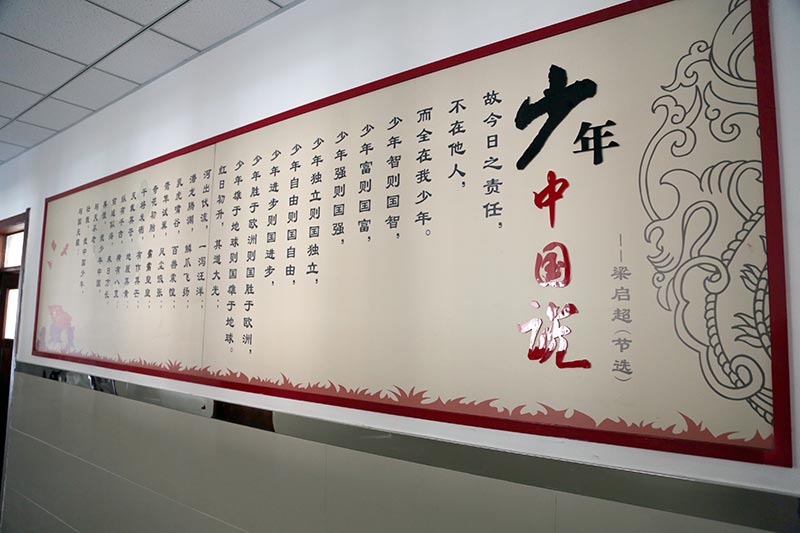 少年中国说
——梁启超(节选)
故今日之责任,
不在他人,
而全在我少年。
少年智则国智,
少年富则国富,
少年强则国强,
少年独立则国独立,
少年自由则国自由,
少年进步则国进步,
少年胜于欧洲则国胜于欧洲,
少年雄于地球则国雄于地球。
红日初升,其道大光,
河出伏流,一泻汪洋
潜龙腾渊,鳞爪飞扬,
乳虎啸谷,百兽震惶
鹰隼试翼,风尘吸张,
奇花初胎,矞矞皇皇,
干将发硎,有作其芒
天戴其苍,地履其黄
纵有千古,横有八荒
前途似海,来日方长
美哉我少年中国,
与天不老
壮哉我中国少年,
与国无疆